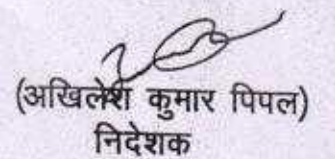 (अखिलेश कुमार पिपल)
निदेशक